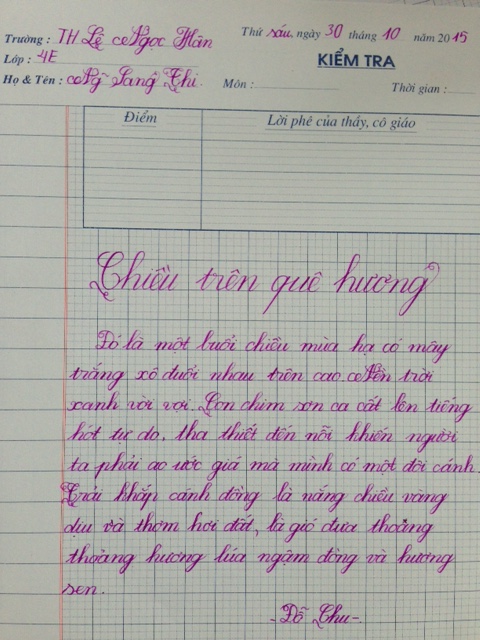 Trường : TH Lê Ngọc Hân Thứ sáu, ngày 30 tháng 10 năm 2015
Lớp : 4E KIỂM TRA
Họ & Tên : Ng Sang Thi. Môn : Thời gian :
Điểm Lời phê của thầy, cô giáo
Chiều trên quê hương
Đó là một buổi chiều mùa hạ có mây
trắng xô đuổi nhau trên cao. Nền trời
xanh vời vợi. Con chim sơn ca cất lên tiếng
hót tự do, tha thiết đến nỗi khiến người
ta phải ao ước giá mà mình có một đôi cánh.
Trải khắp cánh đồng là nắng chiều vàng
dịu và thơm hơi đất, là gió đưa thoảng
thoảng hương lúa ngậm đòng và hương
sen.
- Đỗ Chu -